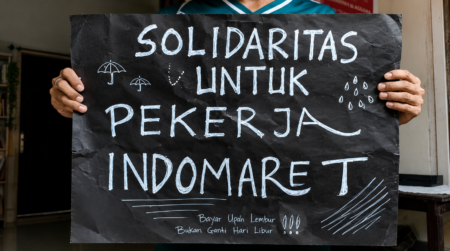 SOLIDARITAS
UNTUK
PEKERJA
INDOMARET
Bayar Upah Lembur
Bukan Ganti Hari Libur !!!